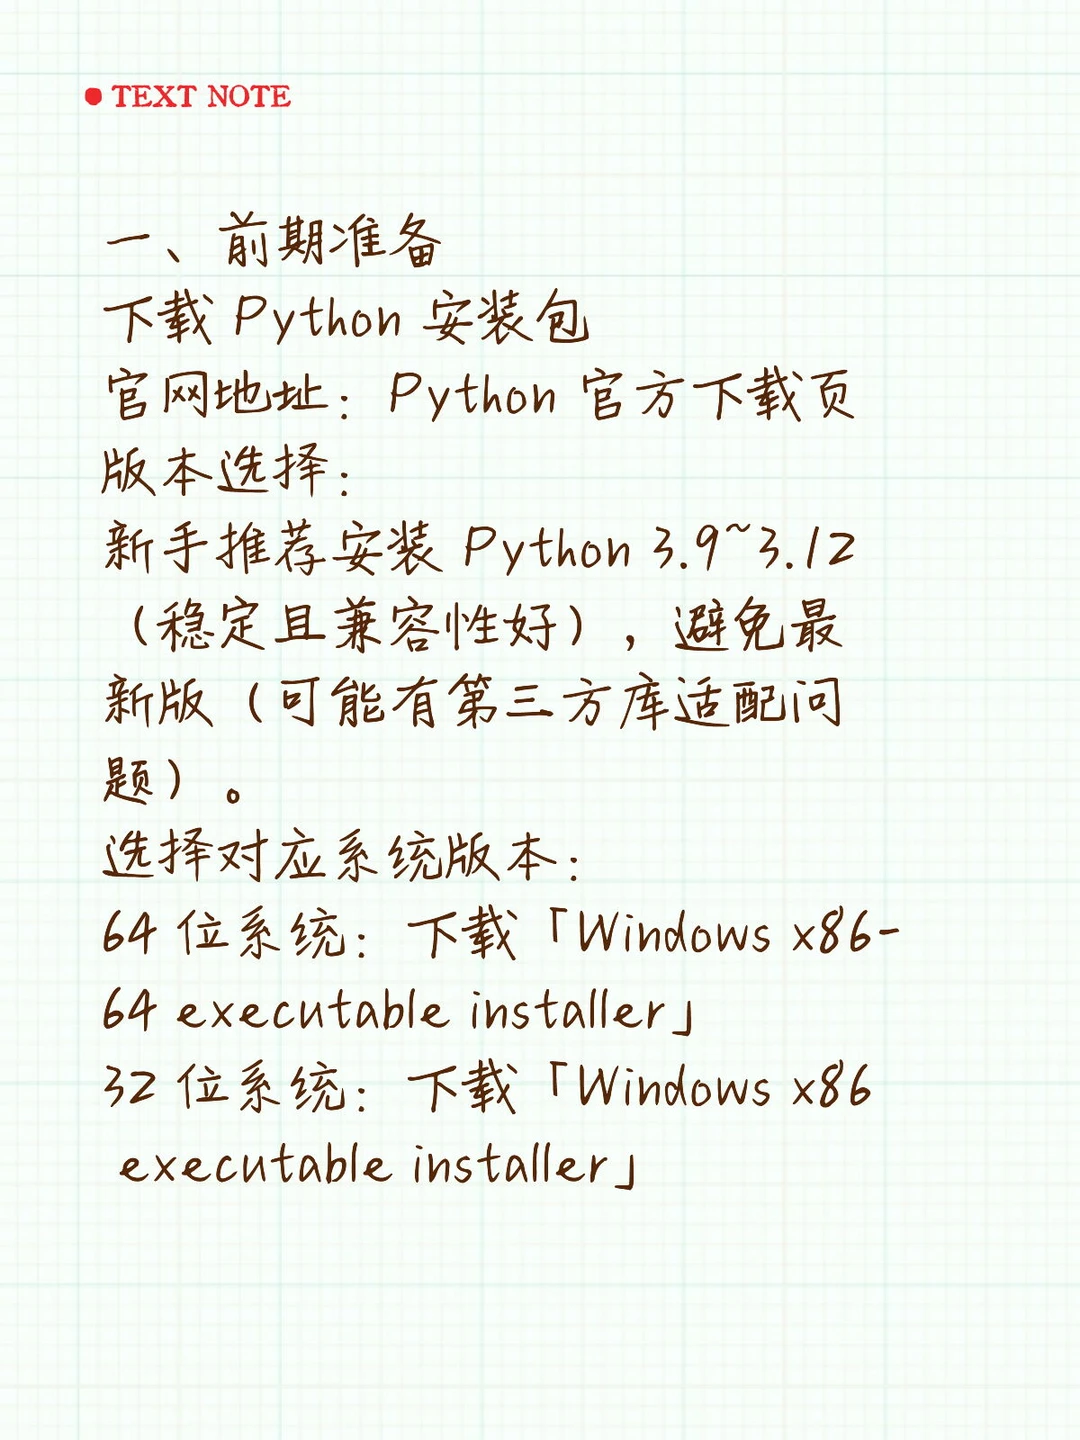 TEXT NOTE
一、前期准备
下载 Python 安装包
官网地址：Python 官方下载页
版本选择：
新手推荐安装 Python 3.9~3.12
（稳定且兼容性好），避免最
新版（可能有第三方库适配问
题）。
选择对应系统版本：
64 位系统：下载「Windows x86-
64 executable installer」
32 位系统：下载「Windows x86
executable installer」